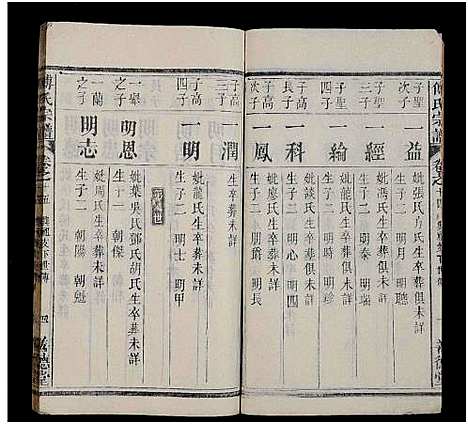 傅氏宗譜
卷之十四
子聖
次子
一益
妣張氏
氏生卒葬俱未詳
生子二 明月 明聰
子聖
三子
一經
妣龍氏生卒葬俱未詳
生子二 明泰 明瑞
子聖
四子
一綸
妣龍氏生卒葬俱未詳
生子二 明珍
子高
長子
一科
妣談氏生卒葬俱未詳
生子二 明心 明四
子高
次子
一鳳
妣龍氏生卒葬未詳
生子二 明 明長
善德堂
傅氏宗譜
卷之十五
子高
三子
一潤
生卒葬未詳
子高
四子
一明
妣龍氏生卒葬未詳
生子二 明士 明甲
之子
明恩
妣葉氏吳氏鄧氏胡氏生卒葬未詳
生子一 朝傑
一蘭
之子
明志
妣周氏生卒葬未詳
生子二 朝陽 朝魁
四
善德堂